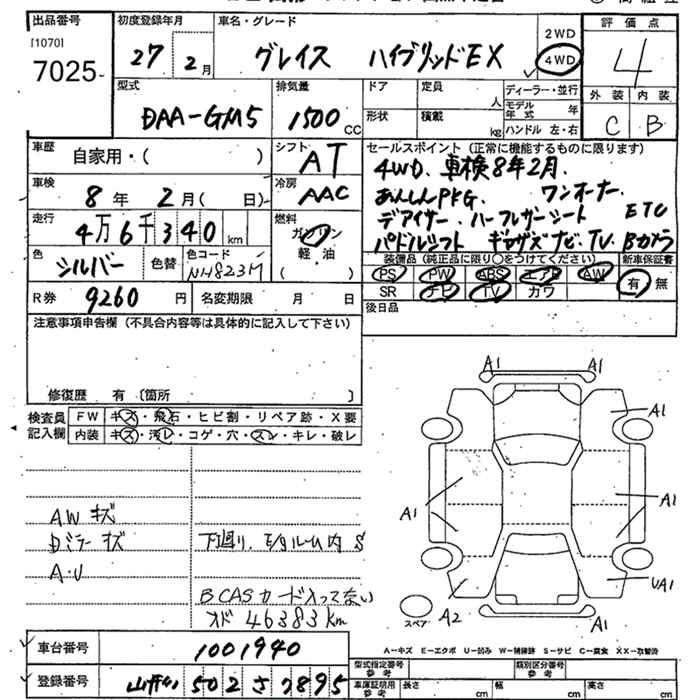 出品番号
[1070]
7025
初度登録年月
27年 2月
車名・グレード
グレイス ハイブリッドEX
2WD
4WD
評価点
4
外装 内装
C B
型式
DAA-GM5
排気量
1500 CC
ドア
定員 人
形状
積載 kg
ディーラー・並行
モデル年式 年
ハンドル 左・右
車歴 自家用・( )
シフト AT
車検 8年 2月( 日)
冷房 AAC
走行 4万6千340 km
燃料 ガソリン 軽油 ( )
色 シルバー 色替
色コード NH823M
R券 9260 円
名変期限 月 日
セールスポイント(正常に機能するものに限ります)
4WD. 車検8年2月.
あんしんPKG. ワンオーナー.
デアイサー.ハーフレザーシート ETC
パドルシフト ギャザズナビ.TV.Bカメラ
装備品(純正品に限り○をつけてください)
新車保証書
PS PW ABS エアB AW
SR ナビ TV カワ
有 無
後日品
注意事項申告欄(不具合内容等は具体的に記入して下さい)
修復歴 有〔箇所 〕
検査員記入欄
FW キズ・飛石・ヒビ割・リペア跡・X要
内装 キズ・汚レ・コゲ・穴・スレ・キレ・破レ
AW キズ
Dミラー キズ
A・U
下廻り.E/gルーム内 S
BCASカード入ってない
オド 46383km
A1 A1
A1
A1 A1
A2 UA1
A1
スペア
車台番号 1001940
登録番号 502 さ 7895
A-キズ E-エクボ U-凹み W-補修跡 S-サビ C-腐食 XX-取替済
型式指定番号 参考
類別区分番号 参考
車庫証明用 参考
長さ cm 幅 cm 高さ cm